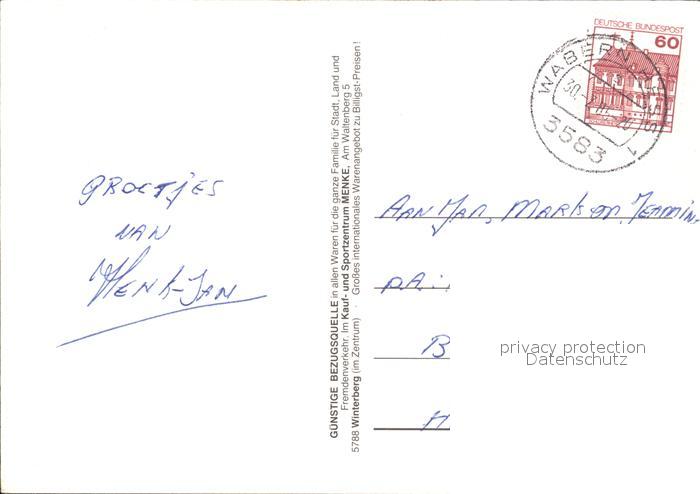 GROETJES
VAN
HENK-JAN
GÜNSTIGE BEZUGSQUELLE in allen Waren für die ganze Familie für Stadt, Land und
Fremdenverkehr. Im Kauf- und Sportzentrum MENKE, Am Waltenberg 5
5788 Winterberg (im Zentrum) · Großes internationales Warenangebot zu Billigst-Preisen!
DEUTSCHE BUNDESPOST
60
WABERN
30.
3583
1
AAN JAN, MARK EN JEAMIN,
P.A.:
B
H
privacy protection
Datenschutz